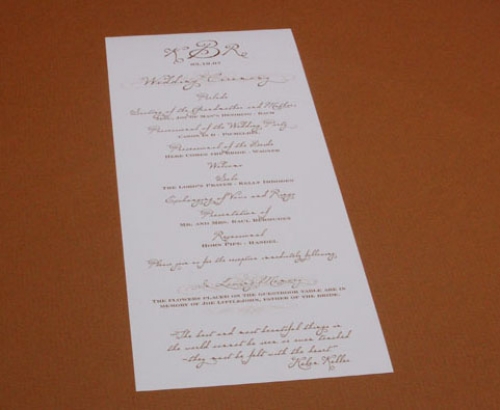 K B R
Wedding Ceremony
Prelude
Seating of the Grandmothers and Mothers
Jesu, Joy of Man's Desiring - Bach
Processional of the Wedding Party
Canon in D - Pachelbel
Processional of the Bride
Here Comes the Bride - Wagner
Welcome
Solo
The Lord's Prayer -
Exchanging of Vows and Rings
Presentation of
Mr. and Mrs.
Recessional
Horn Pipe - Handel
Please join us for the reception immediately following
In Loving Memory
The flowers placed on the guestbook table are in
memory of Joe Littlejohn, father of the bride.
"The best and most beautiful things in
the world cannot be seen or even touched
-they must be felt with the heart"
Helen Keller